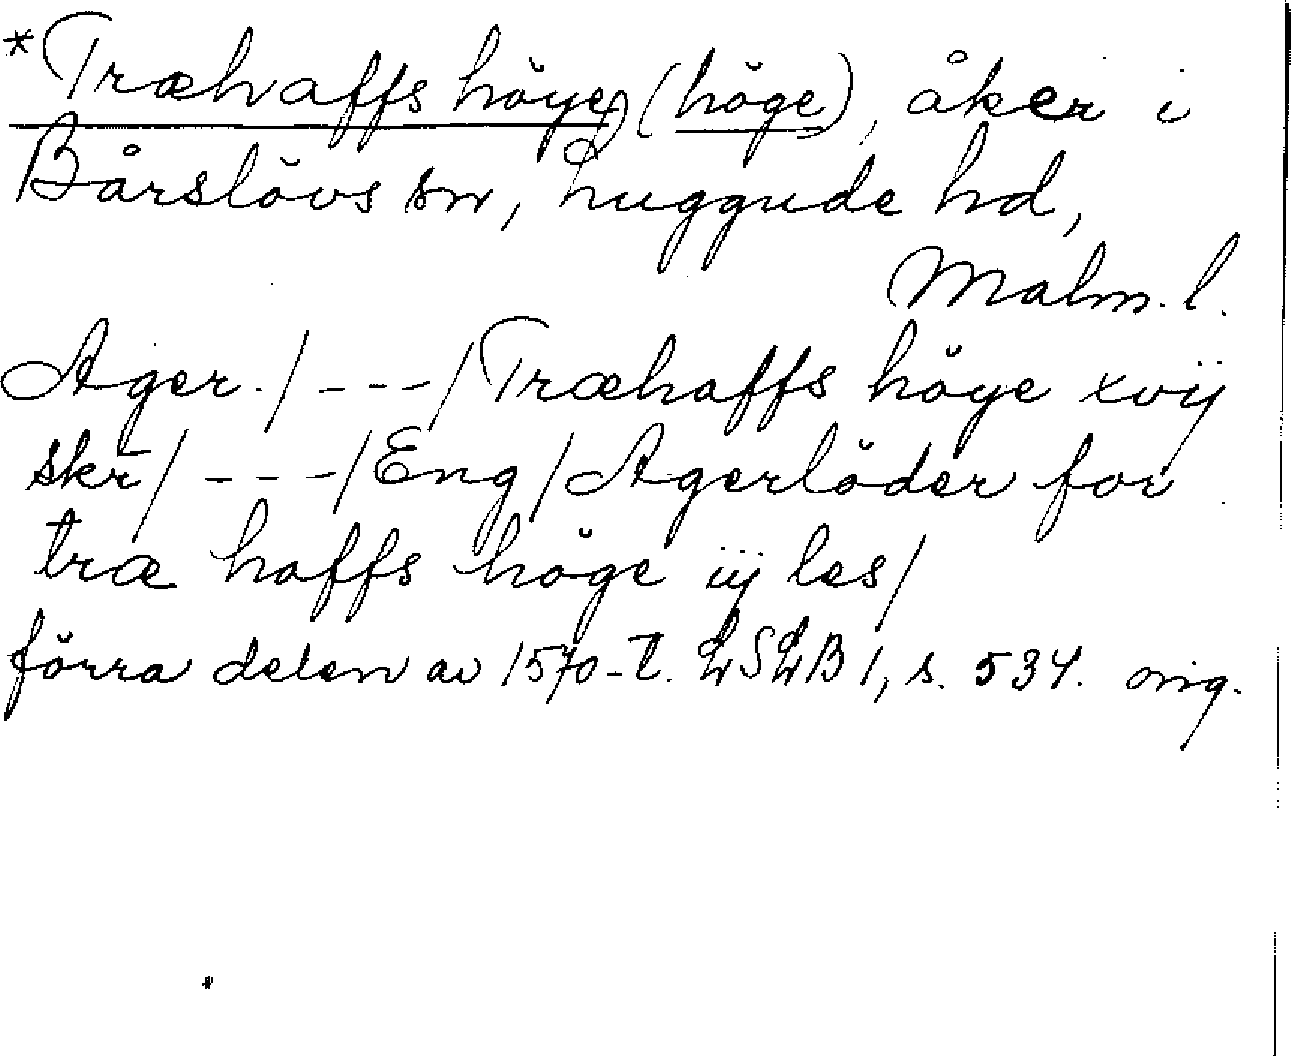 *Træhaffs höye (höge), åker i
Bårslövs sn, Luggude hd,
Malm. l.
Ager. / - - - / Træhaffs höye xvij
skr̄ / - - - / Eng / Agerlöder for
træ haffs höge iij les /
förra delen av 1570-t. LSLB 1, s. 534. orig.